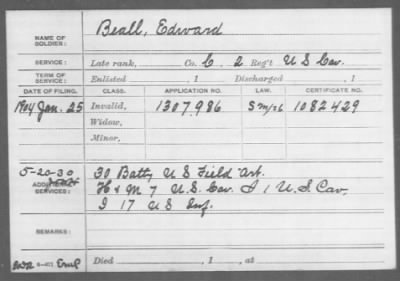 NAME OF SOLDIER: Beall, Edward
SERVICE: Late rank, Co. C, 2 Reg't U S Cav.
TERM OF SERVICE: Enlisted , 1 Discharged , 1
DATE OF FILING. CLASS. APPLICATION NO. LAW. CERTIFICATE NO.
1904 Jan. 25 Invalid, 1307,986 1082429
Widow,
Minor,
5-20-30 30 Batty U S Field Art.
ADDITIONAL SERVICES: H & M 7 U.S. Cav. I 1 U.S Cav,
I 17 U S Inf.
REMARKS:
Died , 1 , at